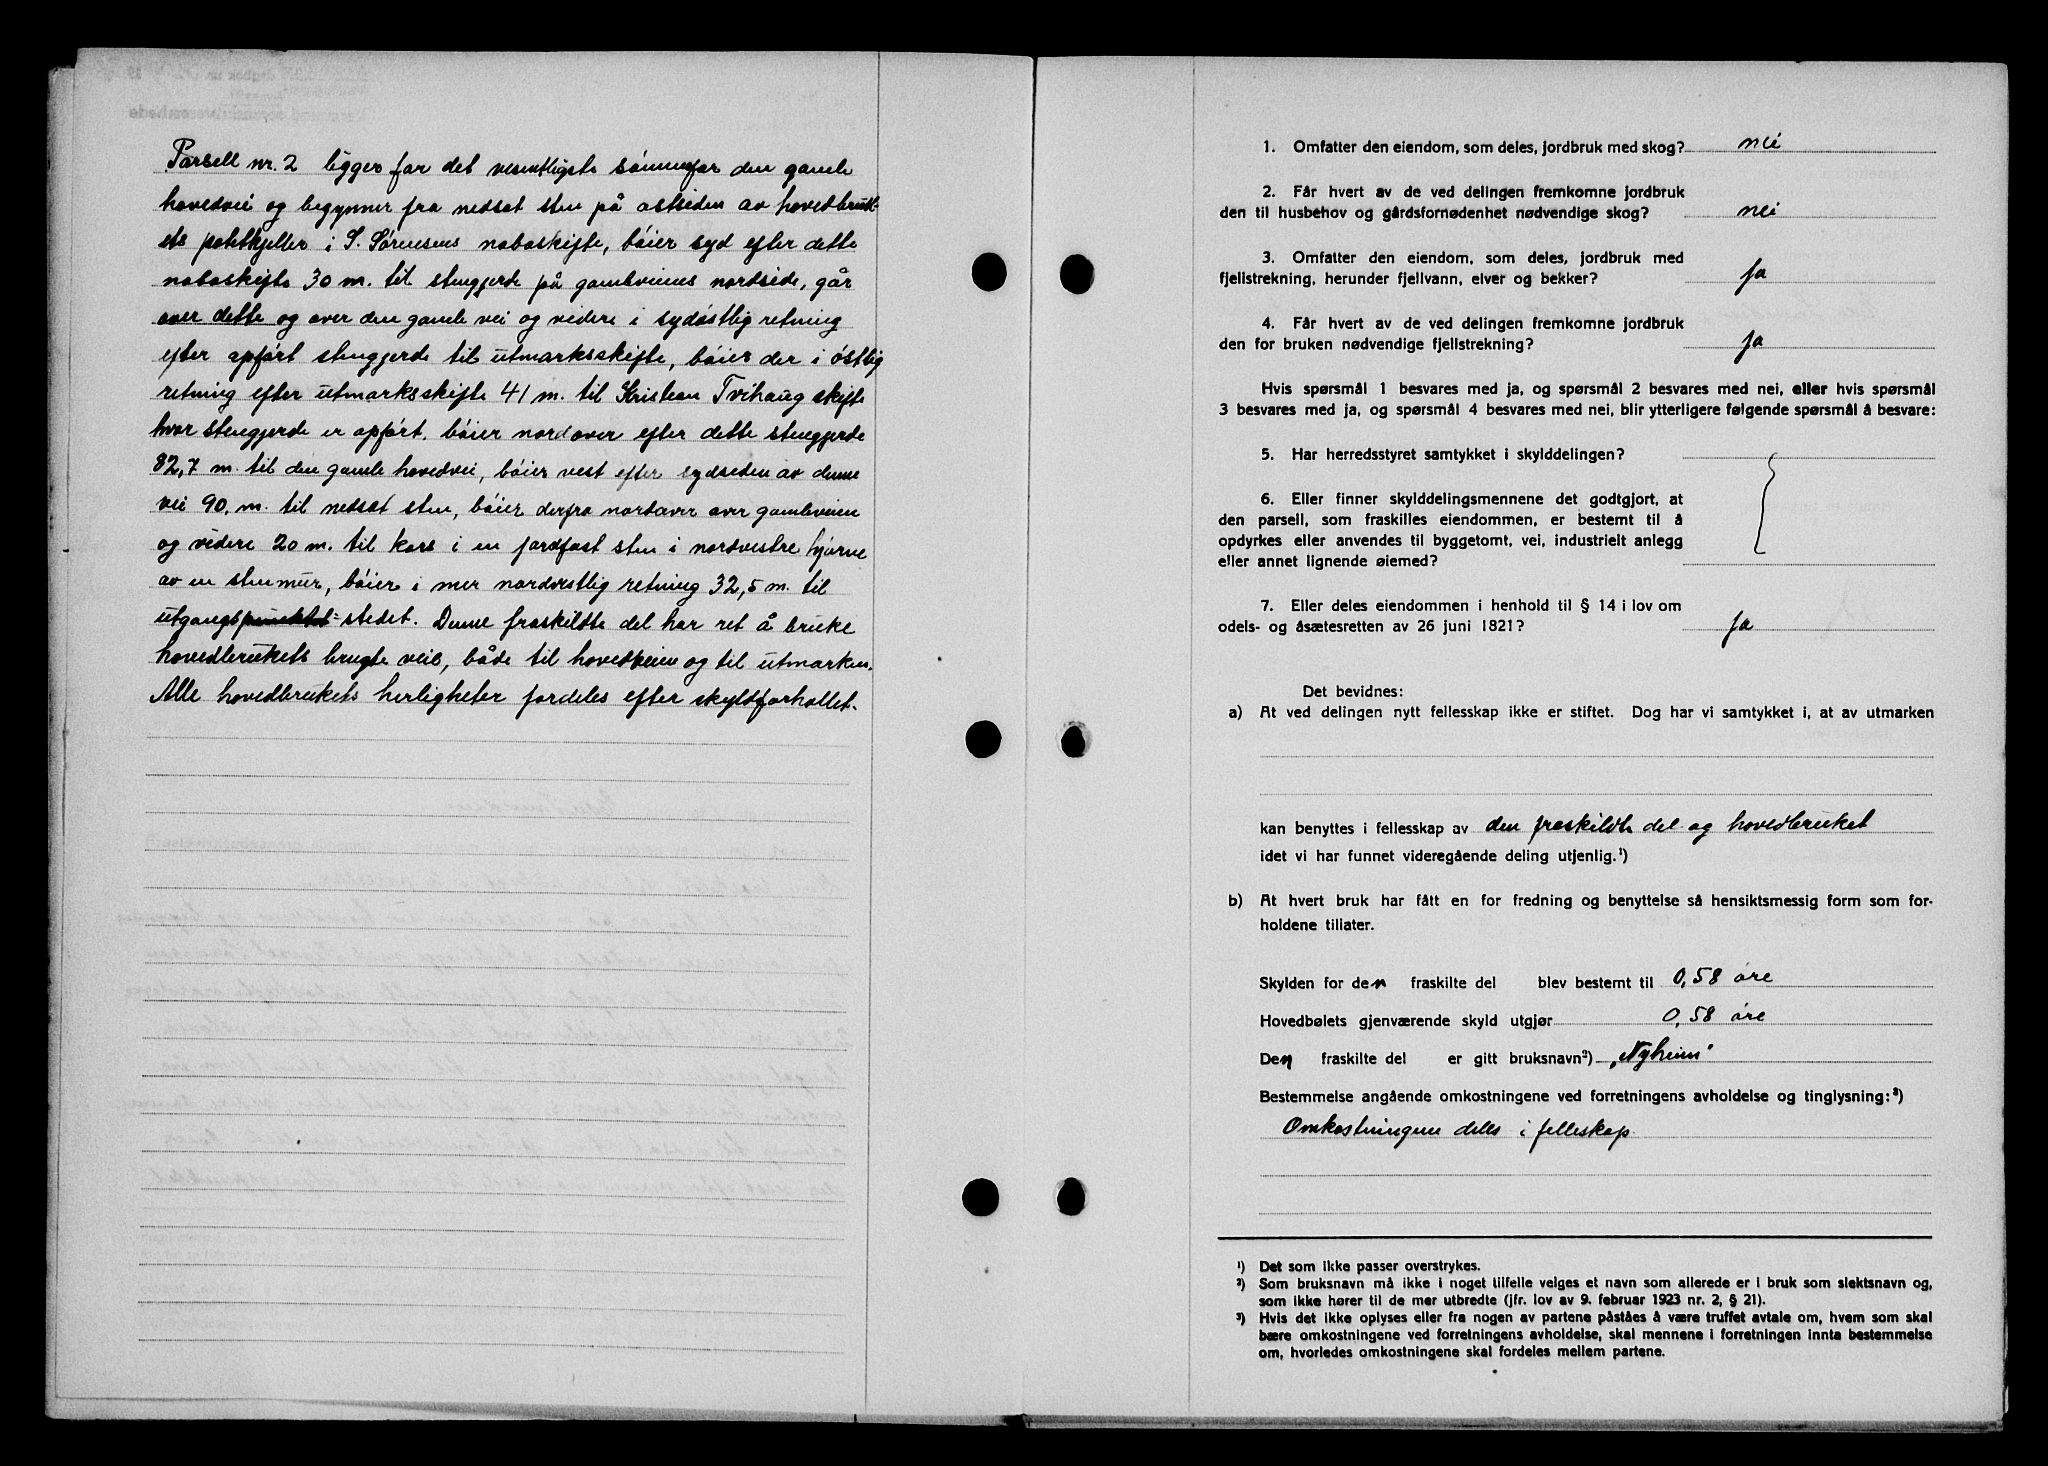 Parsell nr. 2 ligger for det vesentligste sönnenfor den gamle
hovedvei og begynner fra nedsat sten på östsiden av hovedbruk-
ets potetkjeller i S. Sörensens naboskifte, böier syd efter dette
naboskifte 30 m. til stengjerde på gamleveiens nordside, går
over dette og over den gamle vei og videre i sydöstlig retning
efter opfört stengjerde til utmarksskifte, böier der i östlig
retning efter utmarksskifte 41 m. til Kristian Tvihaug skifte
hvor stengjerde er opfört, böier nordover efter dette stengjerde
82,7 m. til den gamle hovedvei, böier vest efter sydsiden av denne
vei 90, m. til nedsat sten, böier derfra nordover over gamleveien
og videre 20 m. til kors i en jordfast sten i nordvestre hjörne
av en stenmur, böier i mer nordvestlig retning 32,5 m. til
utgangspunktet-stedet. Denne fraskildte del har ret å bruke
hovedbrukets brugte veie, både til hovedveien og til utmarken.
Alle hovedbrukets herligheter fordeles efter skyldforholdet.
1. Omfatter den eiendom, som deles, jordbruk med skog? nei
2. Får hvert av de ved delingen fremkomne jordbruk
den til husbehov og gårdsfornødenhet nødvendige skog? nei
3. Omfatter den eiendom, som deles, jordbruk med
fjellstrekning, herunder fjellvann, elver og bekker? Ja
4. Får hvert av de ved delingen fremkomne jordbruk
den for bruken nødvendige fjellstrekning? Ja
Hvis spørsmål 1 besvares med ja, og spørsmål 2 besvares med nei, eller hvis spørsmål
3 besvares med ja, og spørsmål 4 besvares med nei, blir ytterligere følgende spørsmål å besvare:
5. Har herredsstyret samtykket i skylddelingen?
6. Eller finner skylddelingsmennene det godtgjort, at
den parsell, som fraskilles eiendommen, er bestemt til å
opdyrkes eller anvendes til byggetomt, vei, industrielt anlegg
eller annet lignende øiemed?
7. Eller deles eiendommen i henhold til § 14 i lov om
odels- og åsætesretten av 26 juni 1821? Ja
Det bevidnes:
a) At ved delingen nytt fellesskap ikke er stiftet. Dog har vi samtykket i, at av utmarken
kan benyttes i fellesskap av den fraskildte del og hovedbruket
idet vi har funnet videregående deling utjenlig.¹)
b) At hvert bruk har fått en for fredning og benyttelse så hensiktsmessig form som for-
holdene tillater.
Skylden for den fraskilte del blev bestemt til 0,58 öre
Hovedbølets gjenværende skyld utgjør 0,58 öre
Den fraskilte del er gitt bruksnavn²) „Nyheim"
Bestemmelse angående omkostningene ved forretningens avholdelse og tinglysning:³)
Omkostningene deles i felleskap
¹) Det som ikke passer overstrykes.
²) Som bruksnavn må ikke i noget tilfelle velges et navn som allerede er i bruk som slektsnavn og,
som ikke hører til de mer utbredte (jfr. lov av 9. februar 1923 nr. 2, § 21).
³) Hvis det ikke oplyses eller fra nogen av partene påståes å være truffet avtale om, hvem som skal
bære omkostningene ved forretningens avholdelse, skal mennene i forretningen innta bestemmelse
om, hvorledes omkostningene skal fordeles mellem partene.